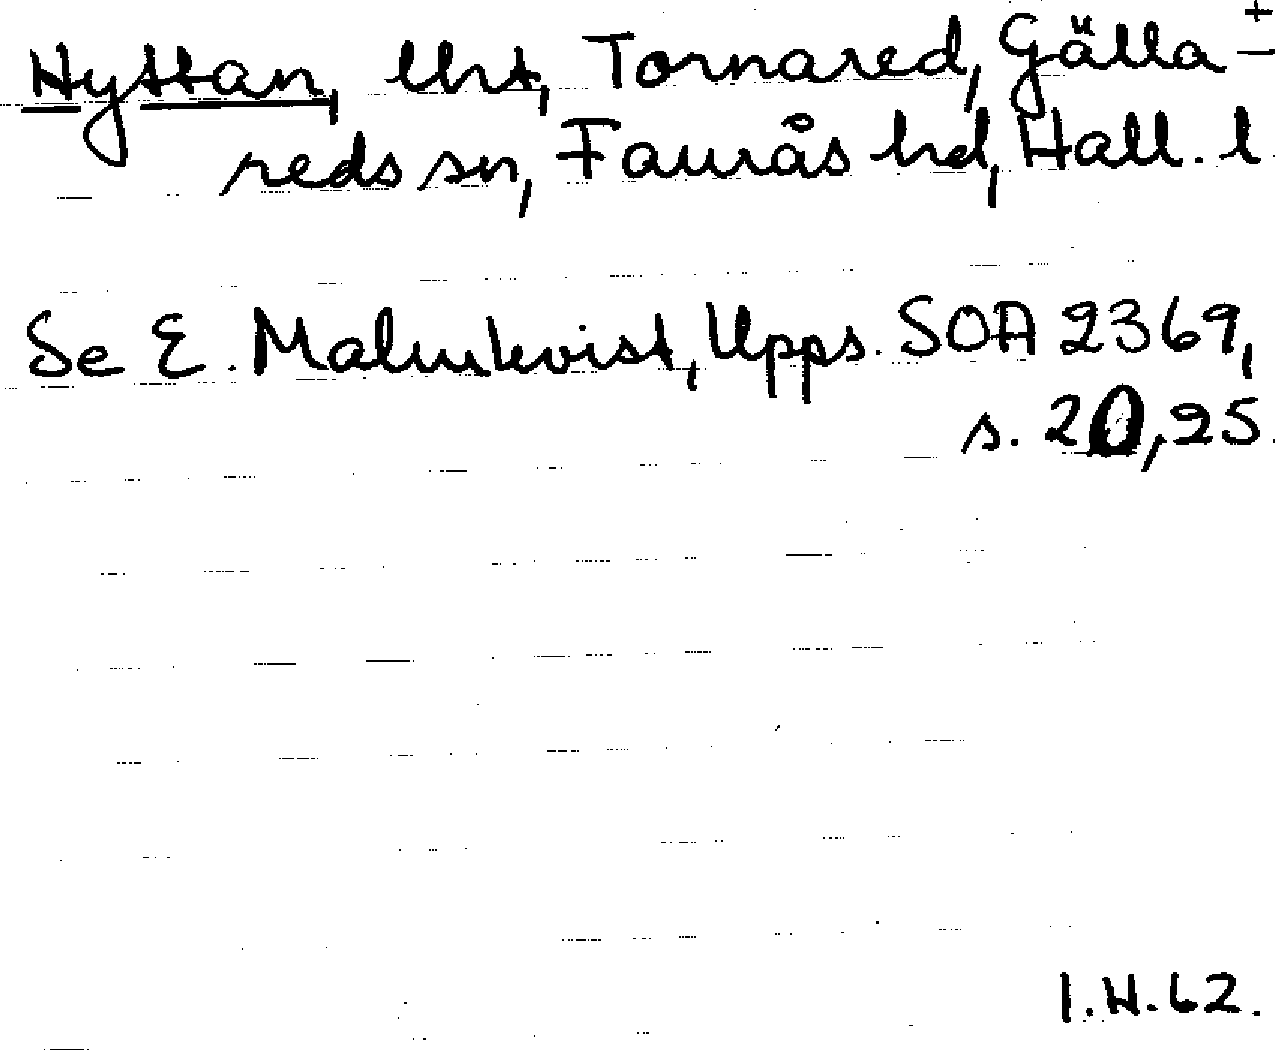 Hyttan, lht, Tornared, Gälla-
reds sn, Faurås hd, Hall. l
Se E. Malmkvist, Upps. SOA 2369,
s. 20, 25.
I.H.62.